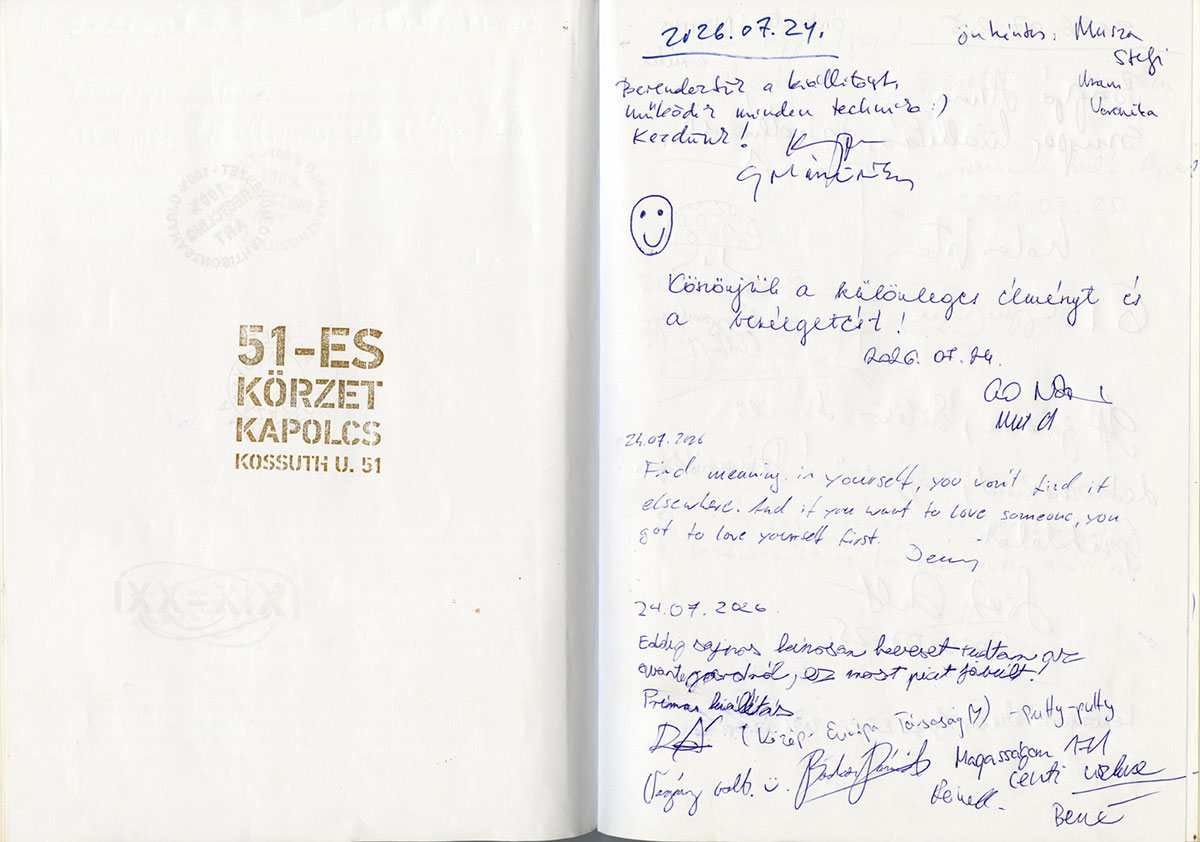 51-ES
KÖRZET
KAPOLCS
KOSSUTH U. 51
2026.07.24.
önkéntes: Musza
Stefi
Uram
Veronika
Berendeztük a kiállítást,
működik minden technika :)
Kezdünk!
Köszönjük a különleges élményt és
a beszélgetést!
2026. 07. 24.
24.07.2026
Find meaning in yourself, you won't find it
elsewhere. And if you want to love someone, you
got to love yourself first.
24.07.2026.
Eddig sajnos kínosan keveset tudtam az
avantgardról, ez most picit javult!
Príma kiállítás
(Közép-Európa Társaság) -putty-putty
Magasságom 171
centi
volt.
Bene